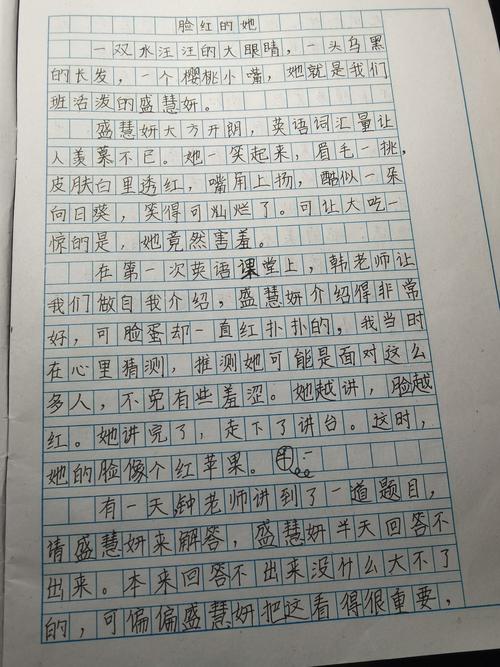 脸红的她
一双水汪汪的大眼睛，一头乌黑
的长发，一个樱桃小嘴，她就是我们
班活泼的盛慧妍。
盛慧妍大方开朗，英语词汇量让
人羡慕不已。她一笑起来，眉毛一挑，
皮肤白里透红，嘴角上扬，酷似一朵
向日葵，笑得可灿烂了。可让大吃一
惊的是，她竟然害羞。
在第一次英语课堂上，韩老师让
我们做自我介绍，盛慧妍介绍得非常
好，可脸蛋却一直红扑扑的，我当时
在心里猜测，推测她可能是面对这么
多人，不免有些羞涩。她越讲，脸越
红。她讲完了，走下了讲台。这时，
她的脸像个红苹果。
有一天钟老师讲到了一道题目，
请盛慧妍来解答，盛慧妍半天回答不
出来。本来回答不出来没什么大不了
的，可偏偏盛慧妍把这看得很重要，